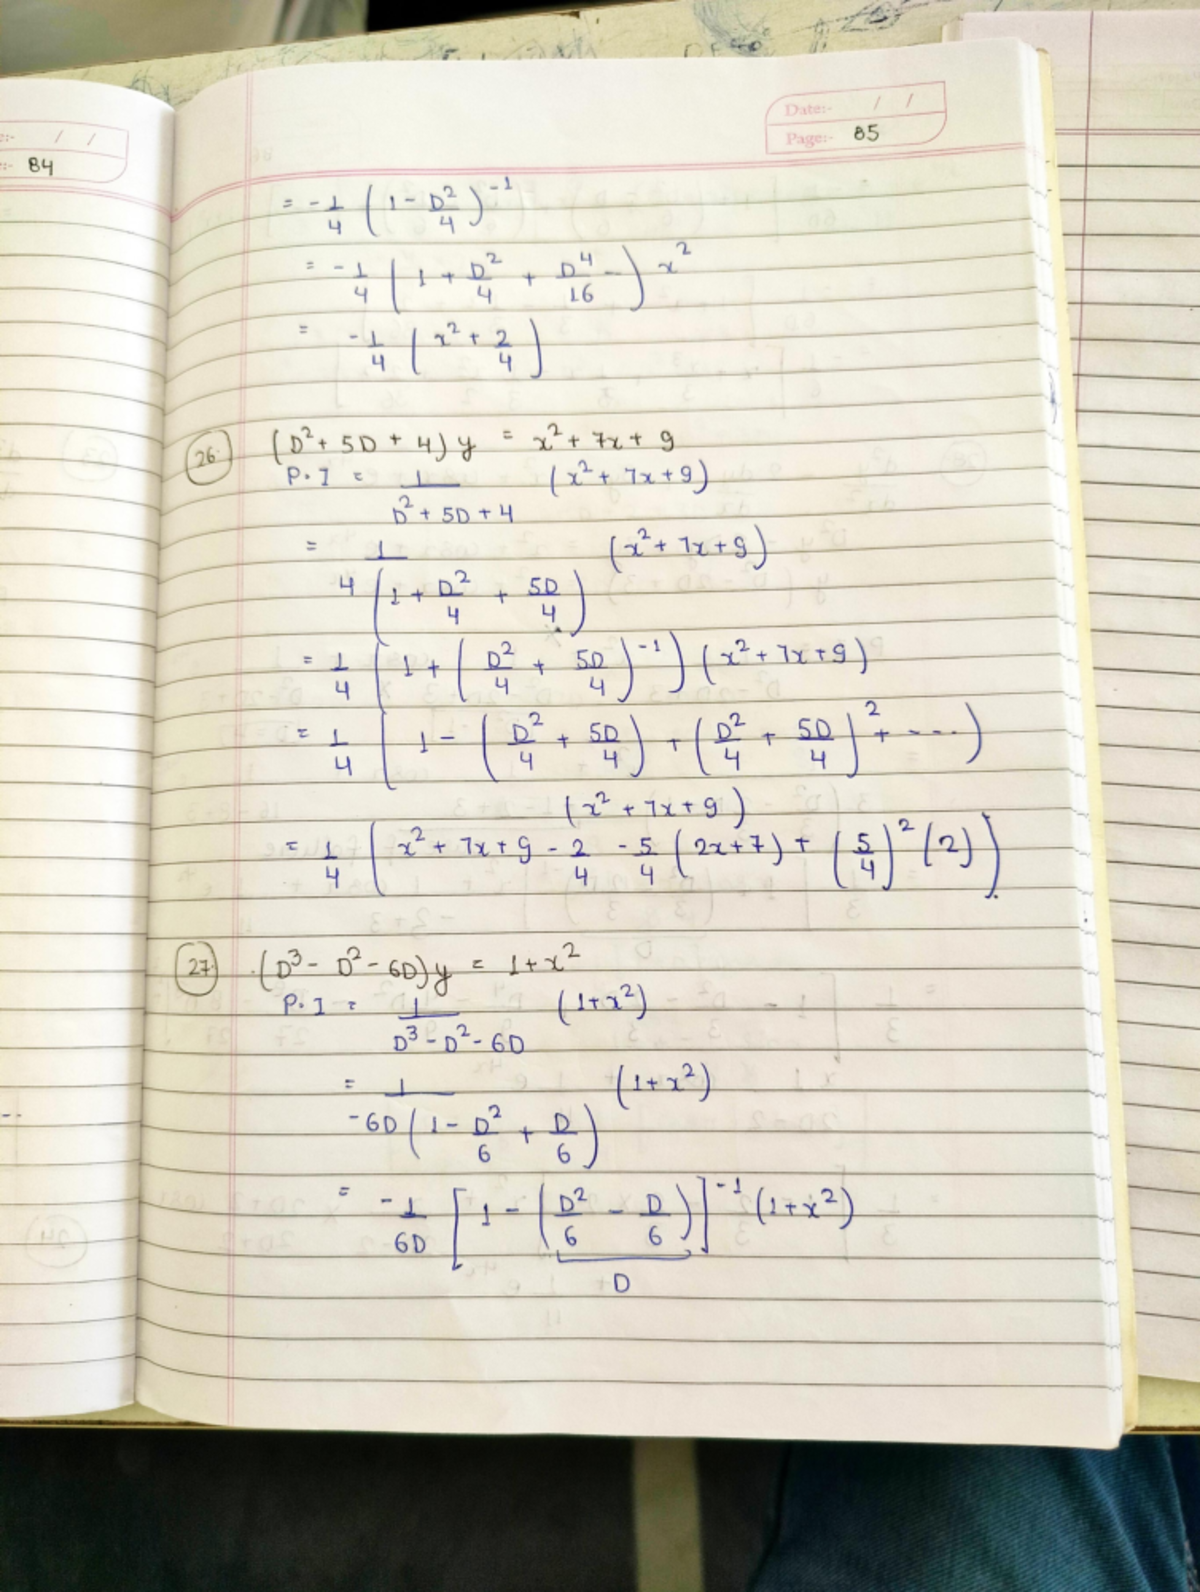 84
Date:- / /
Page:- 85
= -1/4 (1 - D²/4)⁻¹
= -1/4 (1 + D²/4 + D⁴/16 -) x²
= -1/4 (x² + 2/4)
26. (D² + 5D + 4) y = x² + 7x + 9
P.I = 1/(D² + 5D + 4) (x² + 7x + 9)
= 1/(4(1 + D²/4 + 5D/4)) (x² + 7x + 9)
= 1/4 (1 + (D²/4 + 5D/4)⁻¹) (x² + 7x + 9)
= 1/4 [1 - (D²/4 + 5D/4) + (D²/4 + 5D/4)² + ----)
(x² + 7x + 9)
= 1/4 [x² + 7x + 9 - 2/4 - 5/4 (2x + 7) + (5/4)² (2)]
27. (D³ - D² - 6D)y = 1 + x²
P.I = 1/(D³ - D² - 6D) (1 + x²)
= 1/(-6D(1 - D²/6 + D/6)) (1 + x²)
= -1/6D [1 - (D²/6 - D/6)]⁻¹ (1 + x²)
D